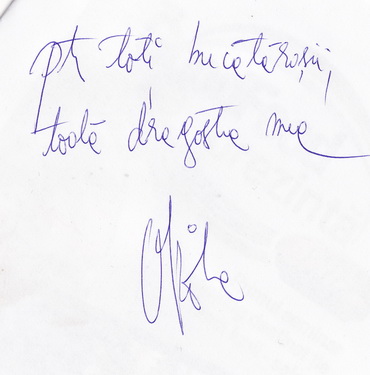 Pt toți bucătăroșii,
toată dragostea mea